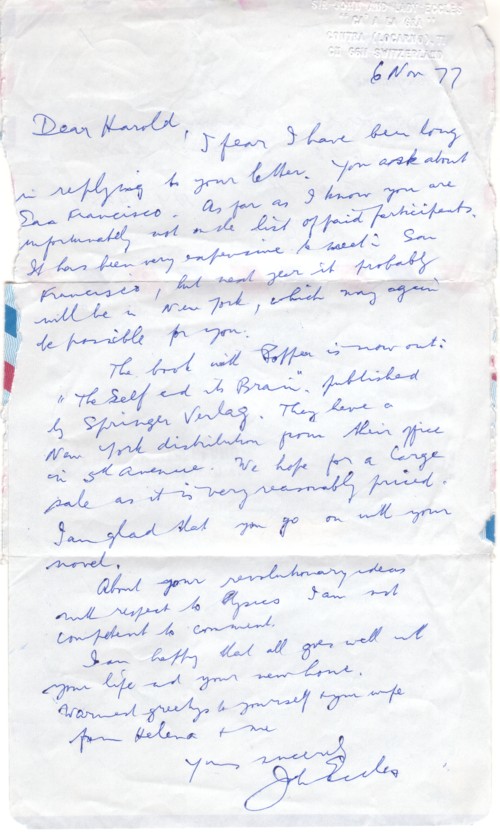 SIR JOHN AND LADY ECCLES
"CA' A LA GRA'"
CONTRA (LOCARNO) TI
CH 6611 SWITZERLAND
6 Nov 77
Dear Harold,
I fear I have been long
in replying to your letter. You ask about
San Francisco. As far as I know you are
unfortunately not on the list of paid participants.
It has been very expensive to meet in San
Francisco, but next year it probably
will be in New York, which may again
be possible for you.
The book with Popper is now out:
"The Self and its Brain". published
by Springer Verlag. They have a
New York distribution from their office
on 5th Avenue. We hope for a large
sale as it is very reasonably priced.
I am glad that you go on with your
novel.
About your revolutionary ideas
with respect to Physics I am not
competent to comment.
I am happy that all goes well with
your life and your new home.
Warmest greetings to yourself & your wife
from Helena & me
Yours sincerely
John Eccles